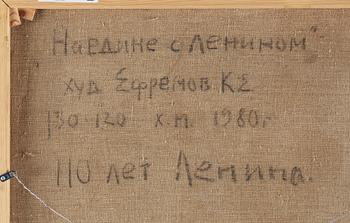 Наедине с Лениным"
худ Ефремов К Е
130·120 х.м. 1980г
110 лет Ленина.